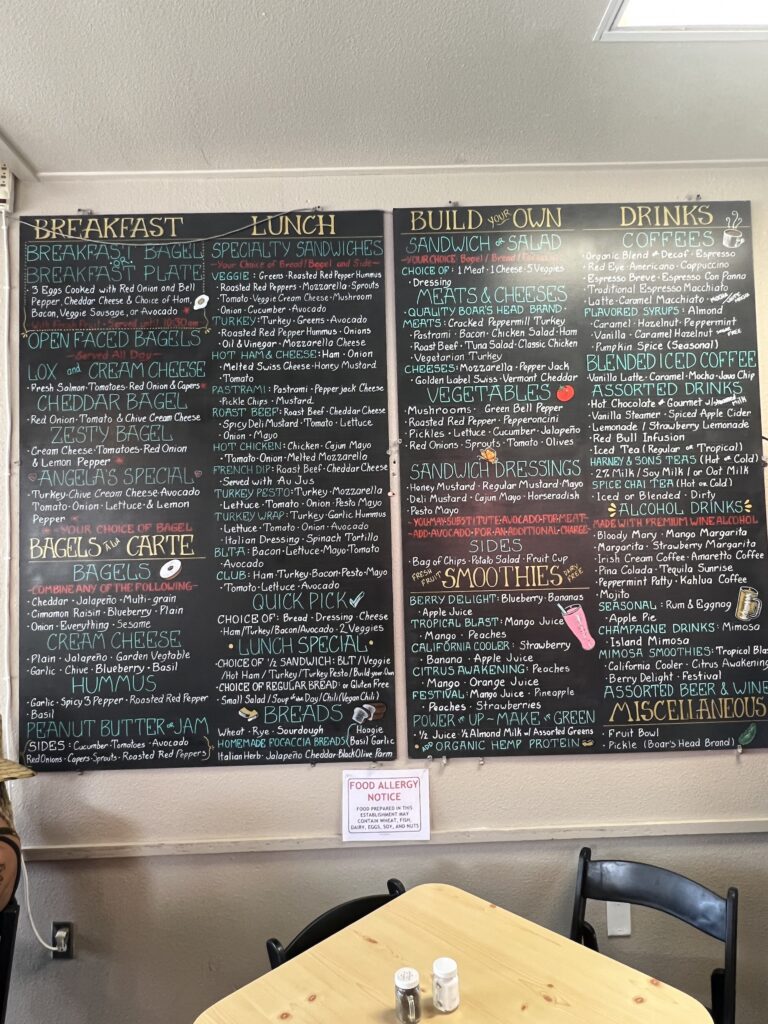 BREAKFAST
BREAKFAST BAGEL
or
BREAKFAST PLATE
· 3 Eggs Cooked with Red Onion and Bell
Pepper, Cheddar Cheese & Choice of Ham,
Bacon, Veggie Sausage, or Avocado
With Fresh Fruit · Served until 10:30am
OPEN FACED BAGELS
-Served All Day-
LOX and CREAM CHEESE
· Fresh Salmon · Tomatoes · Red Onion & Capers
CHEDDAR BAGEL
Red Onion · Tomato & Chive Cream Cheese
ZESTY BAGEL
Cream Cheese · Tomatoes · Red Onion
& Lemon Pepper
ANGELA'S SPECIAL
· Turkey · Chive Cream Cheese · Avocado
Tomato · Onion · Lettuce & Lemon
Pepper
-YOUR CHOICE OF BAGEL
BAGELS A la CARTE
BAGELS
-COMBINE ANY OF THE FOLLOWING-
· Cheddar · Jalapeño · Multi-grain
Cinnamon Raisin · Blueberry · Plain
Onion · Everything · Sesame
CREAM CHEESE
· Plain · Jalapeño · Garden Vegetable
Garlic · Chive · Blueberry · Basil
HUMMUS
· Garlic · Spicy 3 Pepper · Roasted Red Pepper
Basil
PEANUT BUTTER or JAM
SIDES: Cucumber · Tomatoes · Avocado
Red Onions · Capers · Sprouts · Roasted Red Peppers
LUNCH
SPECIALTY SANDWICHES
-Your Choice of Bread/Bagel and Side-
VEGGIE: Greens · Roasted Red Pepper Hummus
· Roasted Red Peppers · Mozzarella · Sprouts
· Tomato · Veggie Cream Cheese · Mushroom
· Onion · Cucumber · Avocado
TURKEY: Turkey · Greens · Avocado
· Roasted Red Pepper Hummus · Onions
· Oil & Vinegar · Mozzarella Cheese
HOT HAM & CHEESE: Ham · Onion
· Melted Swiss Cheese · Honey Mustard
· Tomato
PASTRAMI: Pastrami · Pepper jack Cheese
· Pickle Chips · Mustard
ROAST BEEF: Roast Beef · Cheddar Cheese
· Spicy Deli Mustard · Tomato · Lettuce
· Onion · Mayo
HOT CHICKEN: Chicken · Cajun Mayo
· Tomato · Onion · Melted Mozzarella
FRENCH DIP: Roast Beef · Cheddar Cheese
· Served with Au Jus
TURKEY PESTO: Turkey · Mozzarella
· Lettuce · Tomato · Onion · Pesto Mayo
TURKEY WRAP: Turkey · Garlic Hummus
· Lettuce · Tomato · Onion · Avocado
· Italian Dressing · Spinach Tortilla
BLTA: Bacon · Lettuce · Mayo · Tomato
· Avocado
CLUB: Ham · Turkey · Bacon · Pesto · Mayo
· Tomato · Lettuce · Avocado
QUICK PICK
CHOICE OF: Bread · Dressing · Cheese
· Ham/Turkey/Bacon/Avocado · 2 Veggies
· LUNCH SPECIAL ·
CHOICE OF ½ SANDWICH: BLT / Veggie
/ Hot Ham / Turkey / Turkey Pesto / Build your own
CHOICE OF REGULAR BREAD or Gluten Free
Small Salad / Soup of the Day / Chili (Vegan Chili)
BREADS
Wheat · Rye · Sourdough · Hoagie
HOMEMADE FOCACCIA BREADS (Basil Garlic
Italian Herb · Jalapeño Cheddar · Black Olive Parm
BUILD YOUR OWN
SANDWICH or SALAD
-YOUR CHOICE Bagel / Bread / Focaccia-
CHOICE OF: 1 Meat · 1 Cheese · 5 Veggies
· Dressing
MEATS & CHEESES
-QUALITY BOAR'S HEAD BRAND-
MEATS: Cracked Peppermill Turkey
· Pastrami · Bacon · Chicken Salad · Ham
· Roast Beef · Tuna Salad · Classic Chicken
· Vegetarian Turkey
CHEESES: Mozzarella · Pepper Jack
· Golden Label Swiss · Vermont Cheddar
VEGETABLES
Mushrooms · Green Bell Pepper
Roasted Red Pepper · Pepperoncini
Pickles · Lettuce · Cucumber · Jalapeño
Red Onions · Sprouts · Tomato · Olives
SANDWICH DRESSINGS
· Honey Mustard · Regular Mustard · Mayo
Deli Mustard · Cajun Mayo · Horseradish
Pesto Mayo
-YOU MAY SUBSTITUTE AVOCADO FOR MEAT-
-ADD AVOCADO FOR AN ADDITIONAL CHARGE-
SIDES
Bag of Chips · Potato Salad · Fruit Cup
FRESH FRUIT SMOOTHIES DAIRY FREE
BERRY DELIGHT: Blueberry · Bananas
· Apple Juice
TROPICAL BLAST: Mango Juice
· Mango · Peaches
CALIFORNIA COOLER: Strawberry
· Banana · Apple Juice
CITRUS AWAKENING: Peaches
· Mango · Orange Juice
FESTIVAL: Mango Juice · Pineapple
· Peaches · Strawberries
POWER it UP - MAKE it GREEN
· ½ Juice · ½ Almond Milk w/ Assorted Greens
· ADD ORGANIC HEMP PROTEIN
DRINKS
COFFEES
Organic Blend & Decaf · Espresso
Red Eye · Americano · Cappuccino
Espresso Breve · Espresso Con Panna
Traditional Espresso Macchiato
Latte · Caramel Macchiato
FLAVORED SYRUPS: Almond
· Caramel · Hazelnut · Peppermint
Vanilla · Caramel Hazelnut
Pumpkin Spice (Seasonal)
BLENDED ICED COFFEE
· Vanilla Latte · Caramel · Mocha · Java Chip
ASSORTED DRINKS
· Hot Chocolate & Gourmet w/
· Vanilla Steamer · Spiced Apple Cider
Lemonade / Strawberry Lemonade
Red Bull Infusion
Iced Tea (Regular or Tropical)
HARNEY & SONS TEAS (Hot or Cold)
· 2% Milk / Soy Milk / or Oat Milk
SPICE CHAI TEA (Hot or Cold)
· Iced or Blended · Dirty
ALCOHOL DRINKS
MADE WITH PREMIUM WINE ALCOHOL
Bloody Mary · Mango Margarita
Margarita · Strawberry Margarita
Irish Cream Coffee · Amaretto Coffee
Pina Colada · Tequila Sunrise
Peppermint Patty · Kahlua Coffee
· Mojito
SEASONAL: Rum & Eggnog
· Apple Pie
CHAMPAGNE DRINKS: Mimosa
· Island Mimosa
MIMOSA SMOOTHIES: Tropical Blas
· California Cooler · Citrus Awakening
Berry Delight · Festival
ASSORTED BEER & WINE
MISCELLANEOUS
· Fruit Bowl
· Pickle (Boar's Head Brand)
FOOD ALLERGY
NOTICE
FOOD PREPARED IN THIS
ESTABLISHMENT MAY
CONTAIN WHEAT, FISH,
DAIRY, EGGS, SOY, AND NUTS